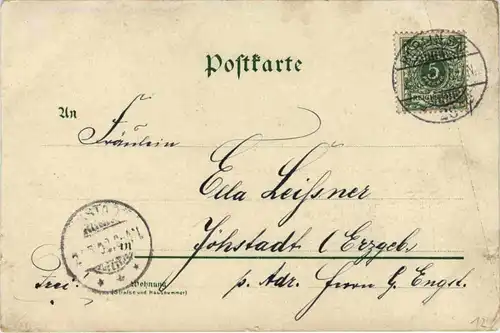 Postkarte
5
An
Fräulein
Ella Leissner
Jöhstadt (Erzgeb.
Frei.
Wohnung
(Straßen und Hausnummer)
p. Adr. Herrn G. Engst.